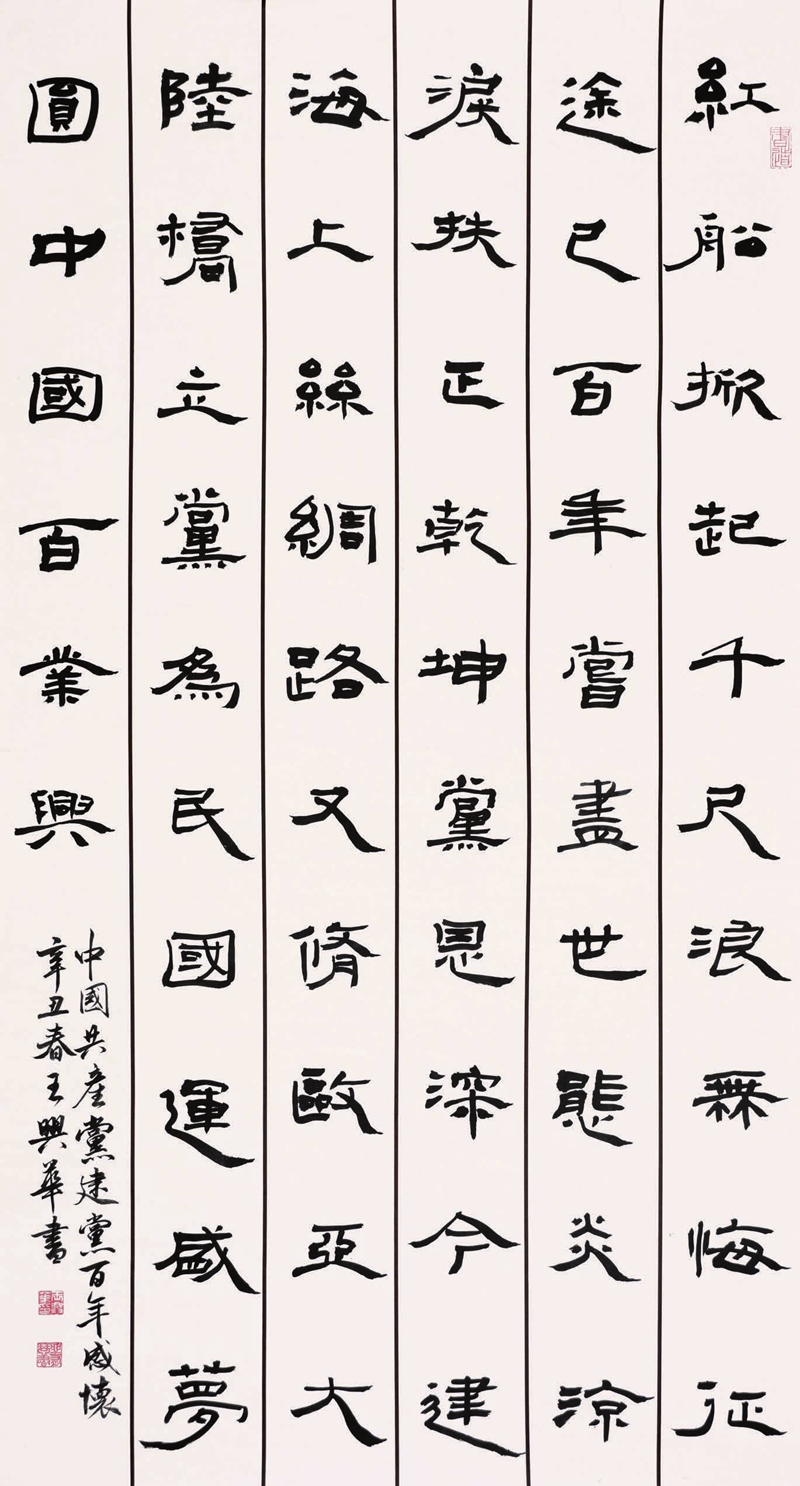 紅船掀起千尺浪無悔征
途已百年嘗盡世態炎涼
淚扶正乾坤黨恩深今建
海上絲綢路又脩歐亞大
陸橋立黨為民國運盛夢
圓中國百業興
中國共產黨建黨百年感懷
辛丑春王興華書